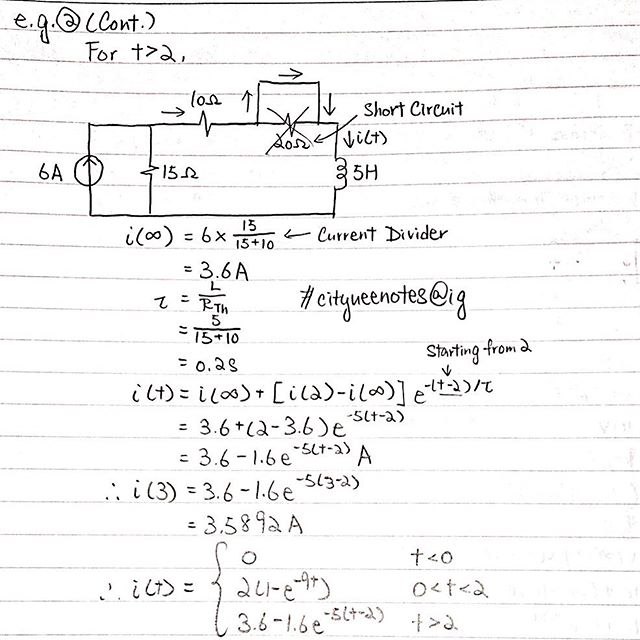 e.g.② (Cont.)
For t>2,
10Ω
Short Circuit
20Ω
i(t)
6A
15Ω
5H
i(∞) = 6 × 15/(15+10) ← Current Divider
= 3.6A
τ = L/R_Th
#cityueenotes@ig
= 5/(15+10)
= 0.2s
Starting from 2
i(t) = i(∞) + [i(2) - i(∞)] e^-(t-2)/τ
= 3.6 + (2 - 3.6) e^-5(t-2)
= 3.6 - 1.6e^-5(t-2) A
∴ i(3) = 3.6 - 1.6e^-5(3-2)
= 3.5892 A
0 t<0
∴ i(t) = { 2(1-e^-9t) 0<t<2
3.6 - 1.6e^-5(t-2) t>2